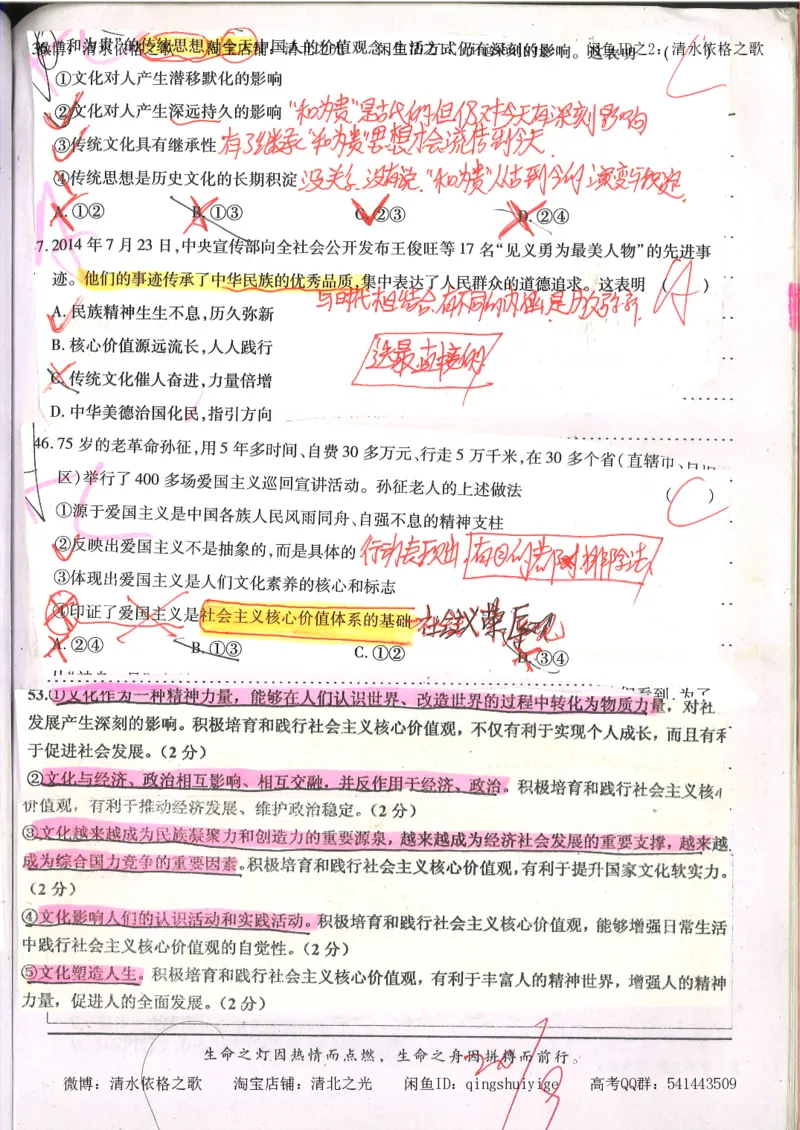 微博：清水依格之歌 淘宝店铺：清北之光 闲鱼ID之2：清水依格之歌
"和为贵"的传统思想对今天中国人的价值观念、生活方式仍有深刻的影响。这表明（ ）
①文化对人产生潜移默化的影响
②文化对人产生深远持久的影响 "和为贵"是古代的,但仍对今天有深刻影响
③传统文化具有继承性 有了继承"和为贵"思想才会流传到今天
④传统思想是历史文化的长期积淀 没关系,没有说"和为贵"从古到今的演变与积淀.
A.①② B.①③ C.②③ D.②④
7.2014年7月23日,中央宣传部向全社会公开发布王俊旺等17名“见义勇为最美人物”的先进事
迹。他们的事迹传承了中华民族的优秀品质,集中表达了人民群众的道德追求。这表明（ ）
A
与时代相结合,有不同的内涵,是历久弥新.
A.民族精神生生不息,历久弥新
B.核心价值源远流长,人人践行
选最直接的!
C.传统文化催人奋进,力量倍增
D.中华美德治国化民,指引方向
46.75岁的老革命孙征,用5年多时间、自费30多万元、行走5万千米,在30多个省(直辖市、自治
区)举行了400多场爱国主义巡回宣讲活动。孙征老人的上述做法（ ）
C
①源于爱国主义是中国各族人民风雨同舟、自强不息的精神支柱
②反映出爱国主义不是抽象的,而是具体的 行动表现出 有②的都对 排除法
③体现出爱国主义是人们文化素养的核心和标志
④印证了爱国主义是社会主义核心价值体系的基础 社会主义荣辱观
A.②④ B.①③ C.①② D.③④
53.①文化作为一种精神力量，能够在人们认识世界、改造世界的过程中转化为物质力量，对社
发展产生深刻的影响。积极培育和践行社会主义核心价值观，不仅有利于实现个人成长，而且有利
于促进社会发展。(2分)
②文化与经济、政治相互影响、相互交融，并反作用于经济、政治。积极培育和践行社会主义核心
价值观，有利于推动经济发展、维护政治稳定。(2分)
③文化越来越成为民族凝聚力和创造力的重要源泉，越来越成为经济社会发展的重要支撑，越来越
成为综合国力竞争的重要因素。积极培育和践行社会主义核心价值观,有利于提升国家文化软实力。
(2分)
④文化影响人们的认识活动和实践活动。积极培育和践行社会主义核心价值观，能够增强日常生活
中践行社会主义核心价值观的自觉性。(2分)
⑤文化塑造人生。积极培育和践行社会主义核心价值观，有利于丰富人的精神世界，增强人的精神
力量，促进人的全面发展。(2分)
生命之灯因热情而点燃，生命之舟因拼搏而前行。
微博：清水依格之歌 淘宝店铺：清北之光 闲鱼ID：qingshuiyige 高考QQ群：541443509